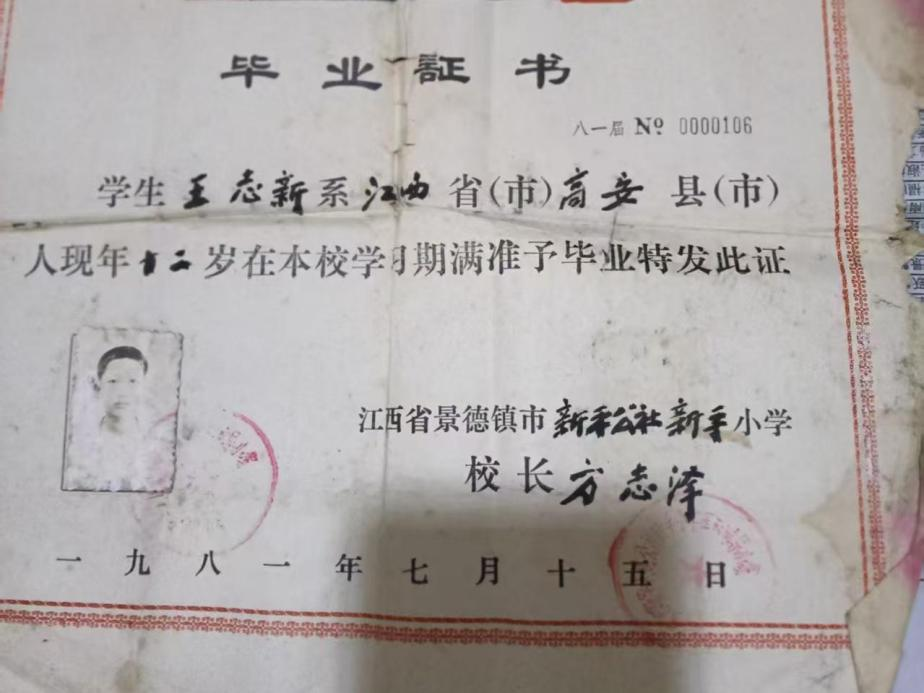 毕业証书
八一届 № 0000106
学生王志新系江西省(市)高安县(市)
人现年十二岁在本校学习期满准予毕业特发此证
江西省景德镇市新平公社新平小学
校长方志泽
一九八一年七月十五日